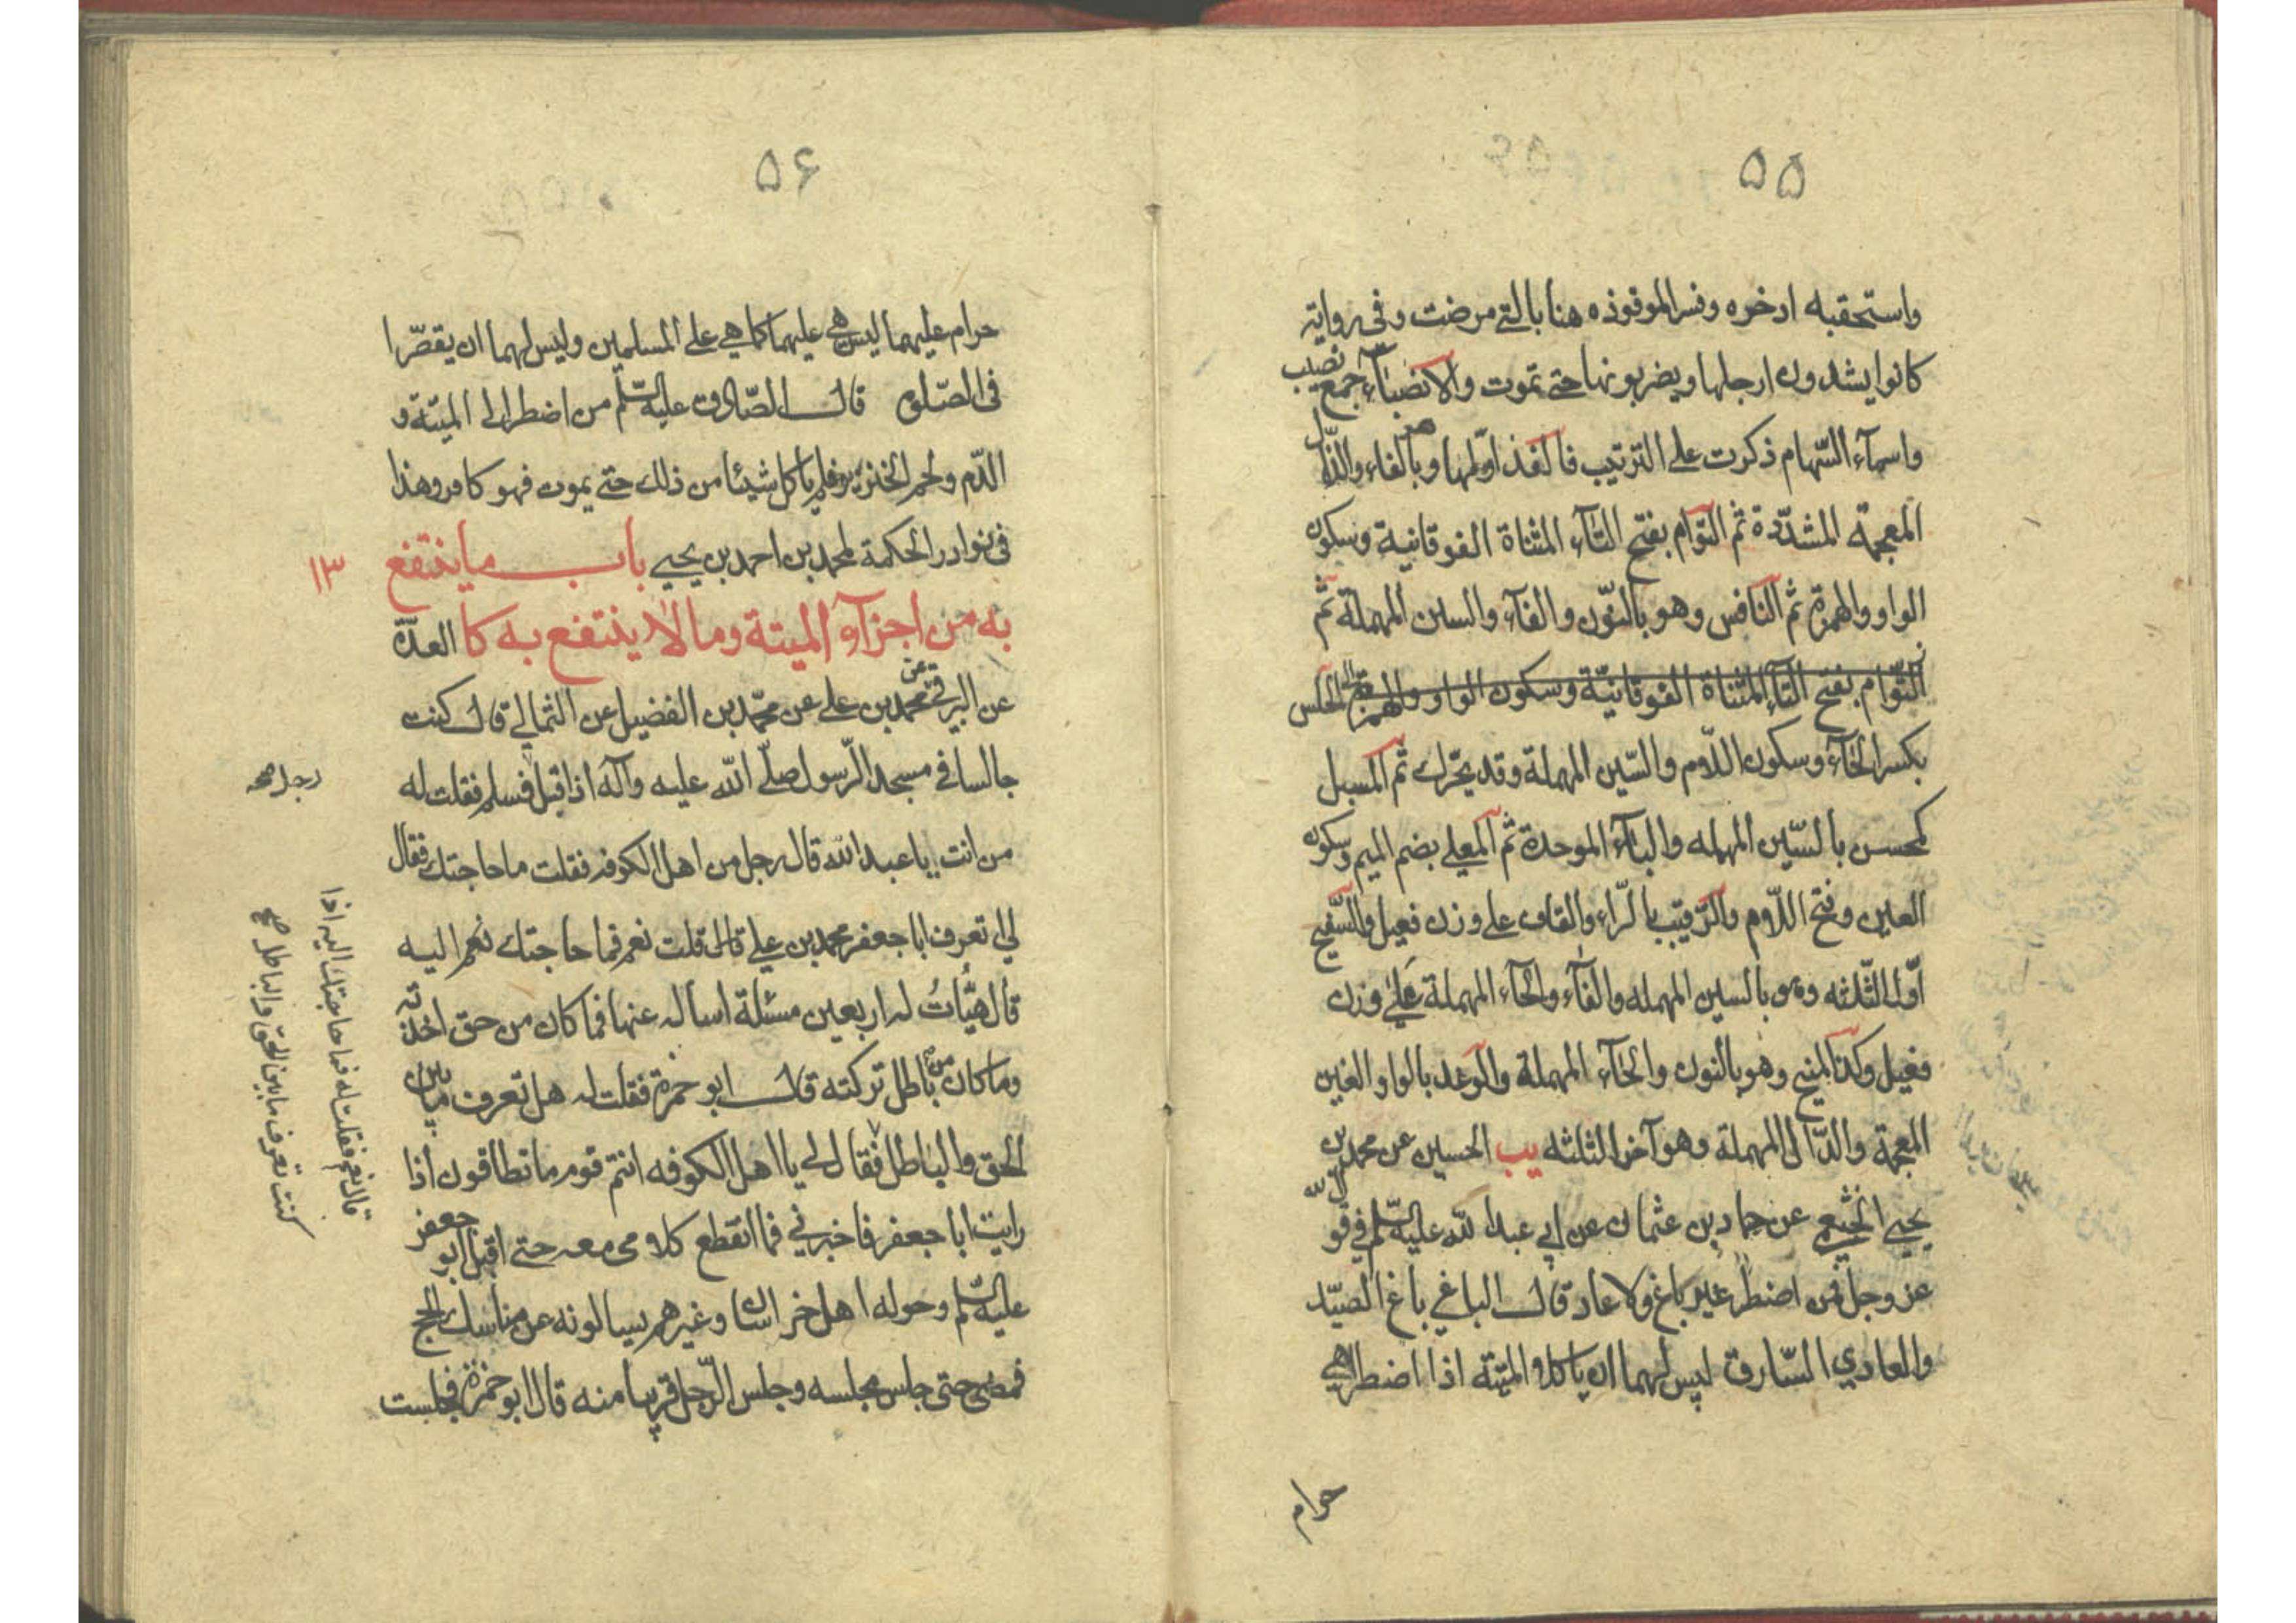 ۵۵
واستحقبه ادخره وفسر الموقوذه هنا بالتي مرضت وفي رواية
كانوا يشدون ارجلها ويضربونها حتى تموت والانصباء جمع نصيب
واسماء السهام ذكرت على الترتيب فالفذ اولها وبالفاء والذال
المعجمة المشددة ثم التوام بفتح التاء المثناة الفوقانية وسكون
الواو والهمزة ثم النافس وهو بالنون والفاء والسين المهملة ثم
التوام بفتح التاء المثناة الفوقانية وسكون الواو والهمزة ثم الحلس
بكسر الحاء وسكون اللام والسين المهملة وقد يحرك ثم المسبل
كمحسن بالسين المهمله والباء الموحدة ثم المعلى بضم الميم وسكون
العين وفتح اللام والرقيب بالراء والقاف على وزن فعيل والسفيح
اول الثلثه وهو بالسين المهمله والفاء والحاء المهملة على وزن
فعيل وكذا المنيح وهو بالنون والحاء المهملة والوغد بالواو والغين
المعجمة والدال المهملة وهو آخر الثلثه يب الحسين عن محمد بن
يحيى الخثعمي عن حماد بن عثمان عن ابي عبد الله عليه السلم في قول الله
عز وجل فمن اضطر غير باغ ولا عاد قال الباغي باغ الصيد
والعادي السارق ليس لهما ان ياكلا الميتة اذا اضطرا هي
حرام
۵۶
حرام عليهما ليس هي عليهما كما هي على المسلمين وليس لهما ان يقصرا
في الصلوة قال الصادق عليه السلم من اضطر الى الميتة و
الدم ولحم الخنزير فلم ياكل شيئا من ذلك حتى يموت فهو كافر وهذا
في نوادر الحكمة لمحمد بن احمد بن يحيى باب ما ينتفع
۱۳
به من اجزاء الميتة وما لا ينتفع به كا العدة
عن البرقي عن محمد بن علي عن محمد بن الفضيل عن الثمالي قال كنت
جالسا في مسجد الرسول صلى الله عليه وآله اذ اقبل فسلم فقلت له
رجل صح
من انت يا عبد الله قال رجل من اهل الكوفه فقلت ما حاجتك فقال
لي اتعرف ابا جعفر محمد بن علي قال قلت نعم فما حاجتك نعم اليه
قال هيات له اربعين مسئلة اساله عنها فما كان من حق اخذته
وما كان من باطل تركته قال ابو حمزة فقلت له هل تعرف ما بين
الحق والباطل فقال لي يا اهل الكوفه انتم قوم ما تطاقون اذا
رايت ابا جعفر فاخبرني فما انقطع كلامي معه حتى اقبل ابو جعفر
عليه السلم وحوله اهل خراسان وغيرهم يسالونه عن مناسك الحج
فمضى حتى جلس مجلسه وجلس الرجل قريبا منه قال ابو حمزة فجلست
قال نعم فقلت له فما حاجتك اليه اذا
كنت تعرف ما بين الحق والباطل صح